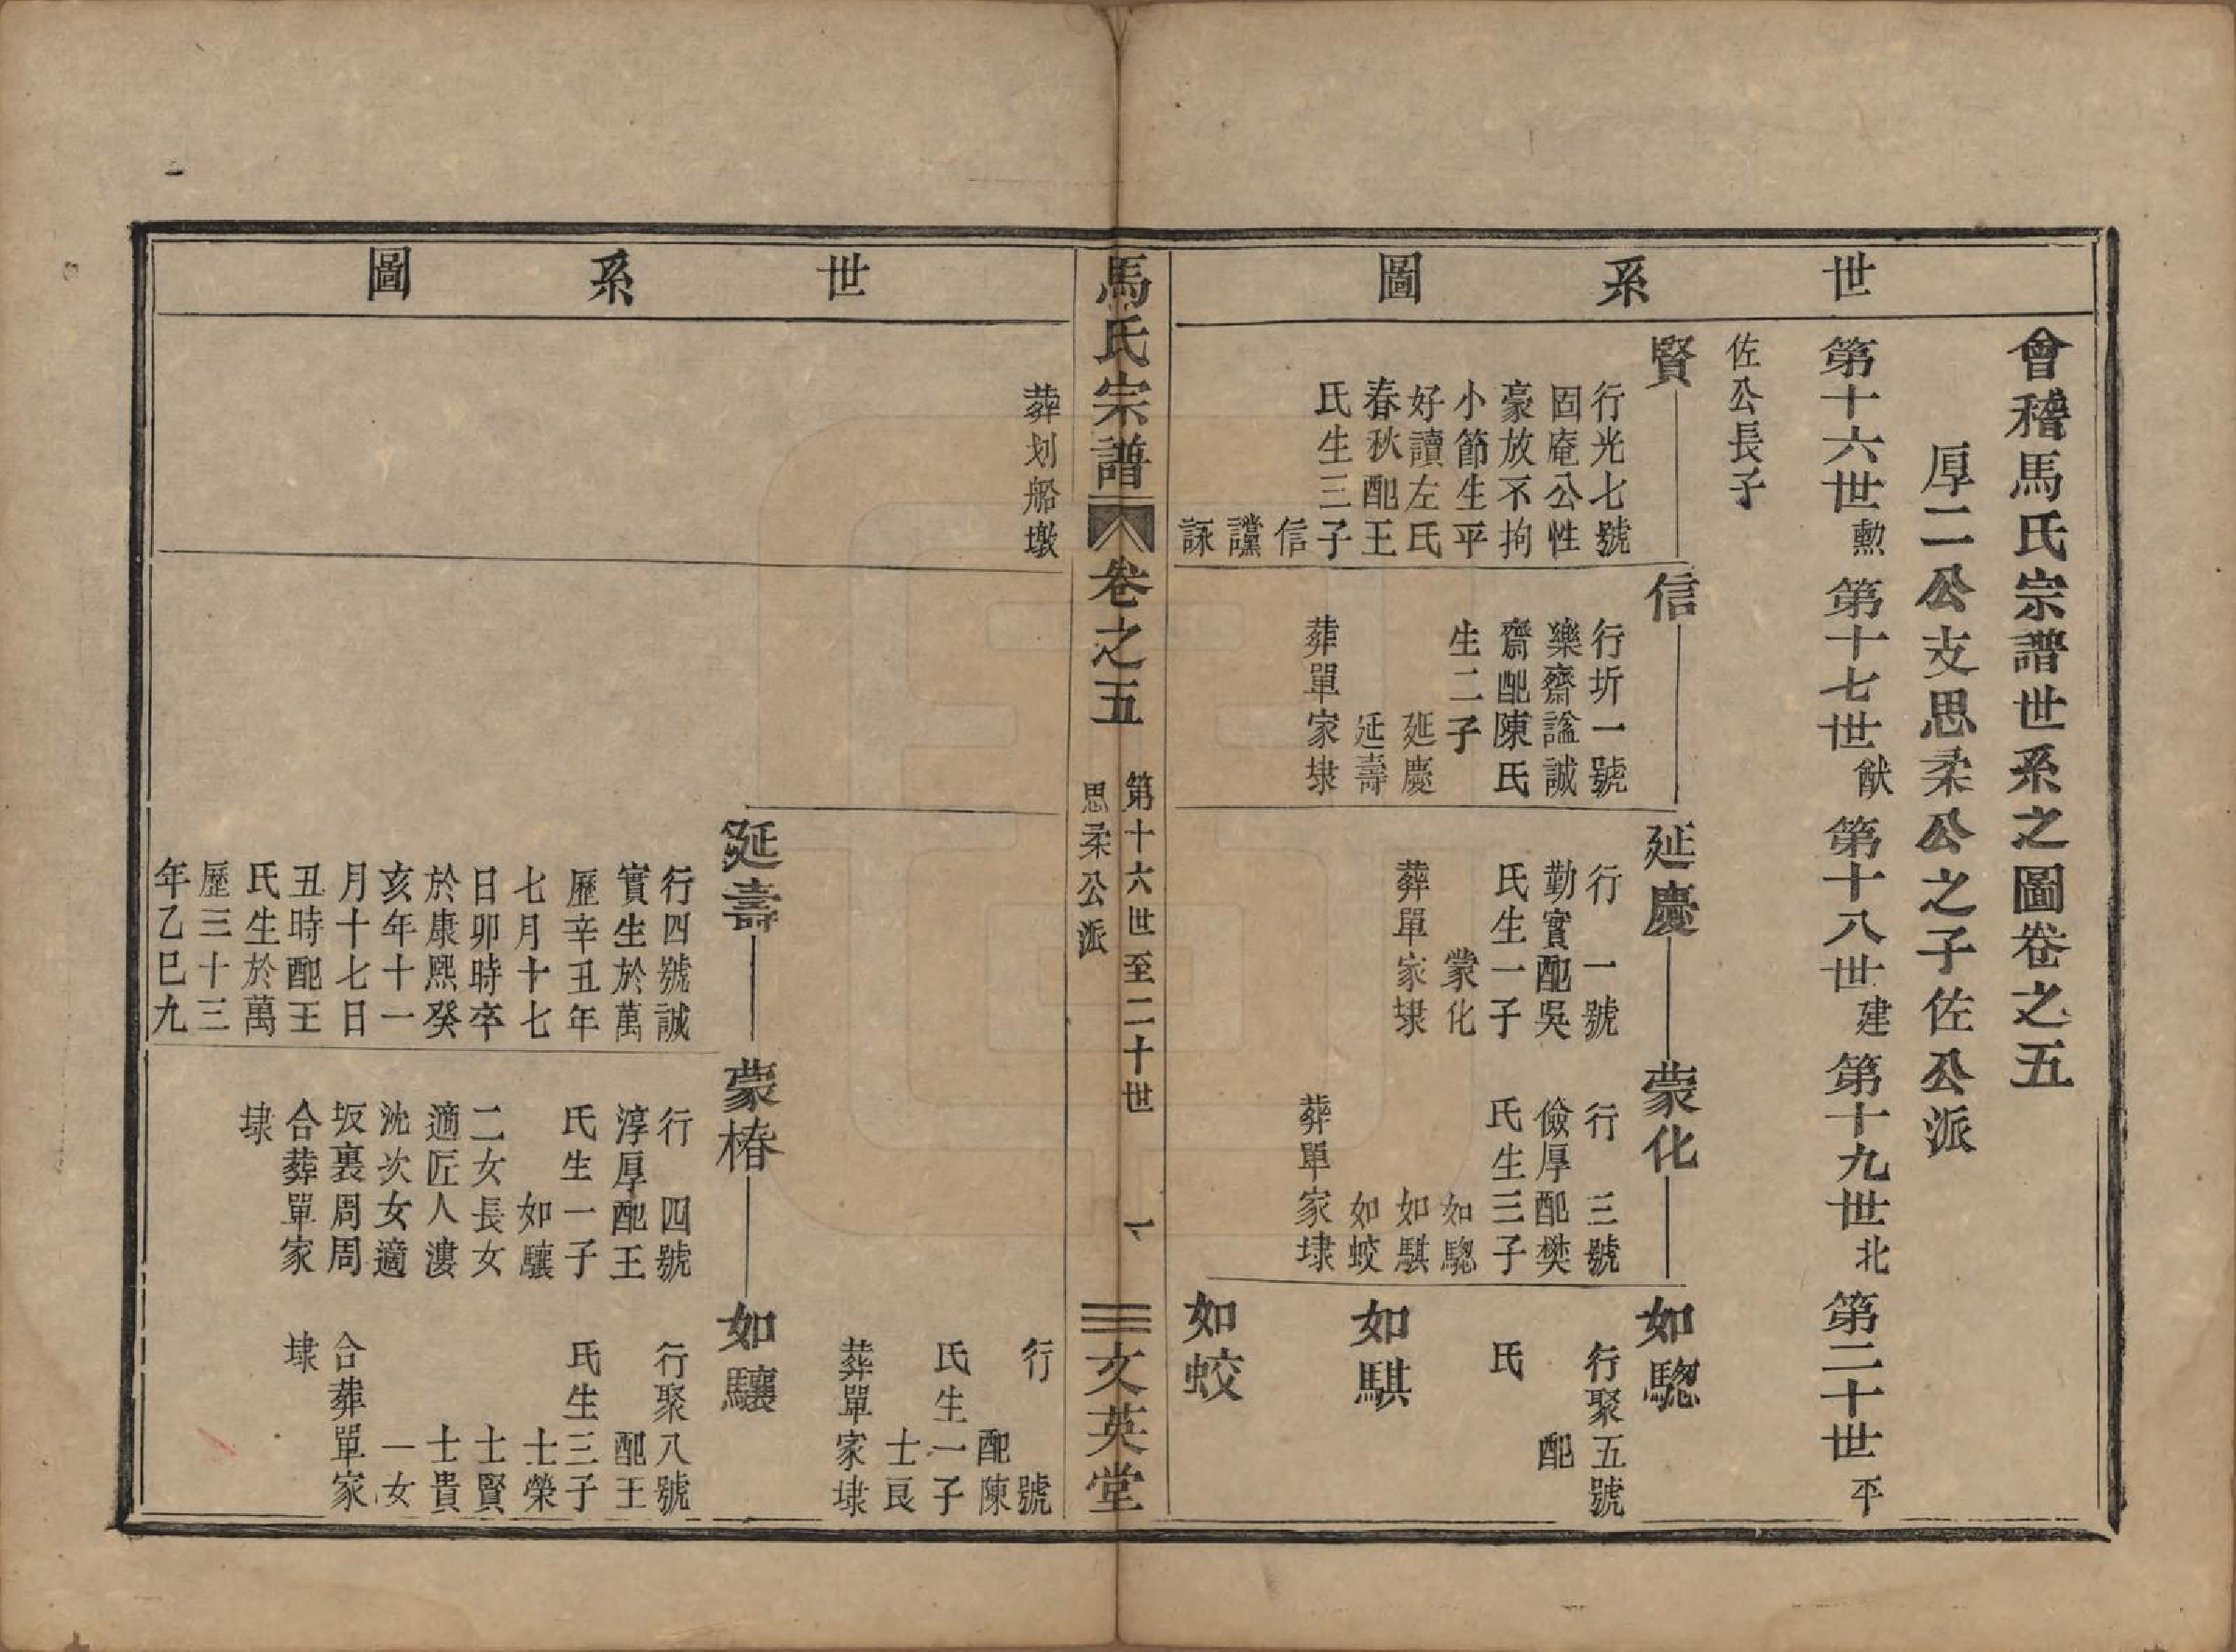 世系圖
會稽馬氏宗譜世系之圖卷之五
厚二公支思柔公之子佐公派
第十六世勲
第十七世猷
第十八世建
第十九世北
第二十世平
佐公長子
賢
行光七號
固庵公性
豪放不拘
小節生平
好讀左氏
春秋配王
氏生三子
信
讜
詠
信
行圻一號
樂齋謚誠
齋配陳氏
生二子
延慶
延壽
葬單家埭
延慶
行一號
勤實配吳
氏生一子
蒙化
葬單家埭
蒙化
行三號
儉厚配樊
氏生三子
如驄
如騏
如蛟
葬單家埭
如驄
行聚五號
配
氏
如騏
如蛟
馬氏宗譜
卷之五
第十六世至二十世
思柔公派
一
文英堂
世系圖
葬划船墩
行號
配陳
氏生一子
士良
葬單家埭
延壽
行四號誠
實生於萬
歷辛丑年
七月十七
日卯時卒
於康熙癸
亥年十一
月十七日
丑時配王
氏生於萬
歷三十三
年乙巳九
蒙椿
行四號
淳厚配王
氏生一子
如驤
二女長女
適匠人漊
沈次女適
坂裏周周
合葬單家
埭
如驤
行聚八號
配王
氏生三子
士榮
士賢
士貴
一女
合葬單家
埭